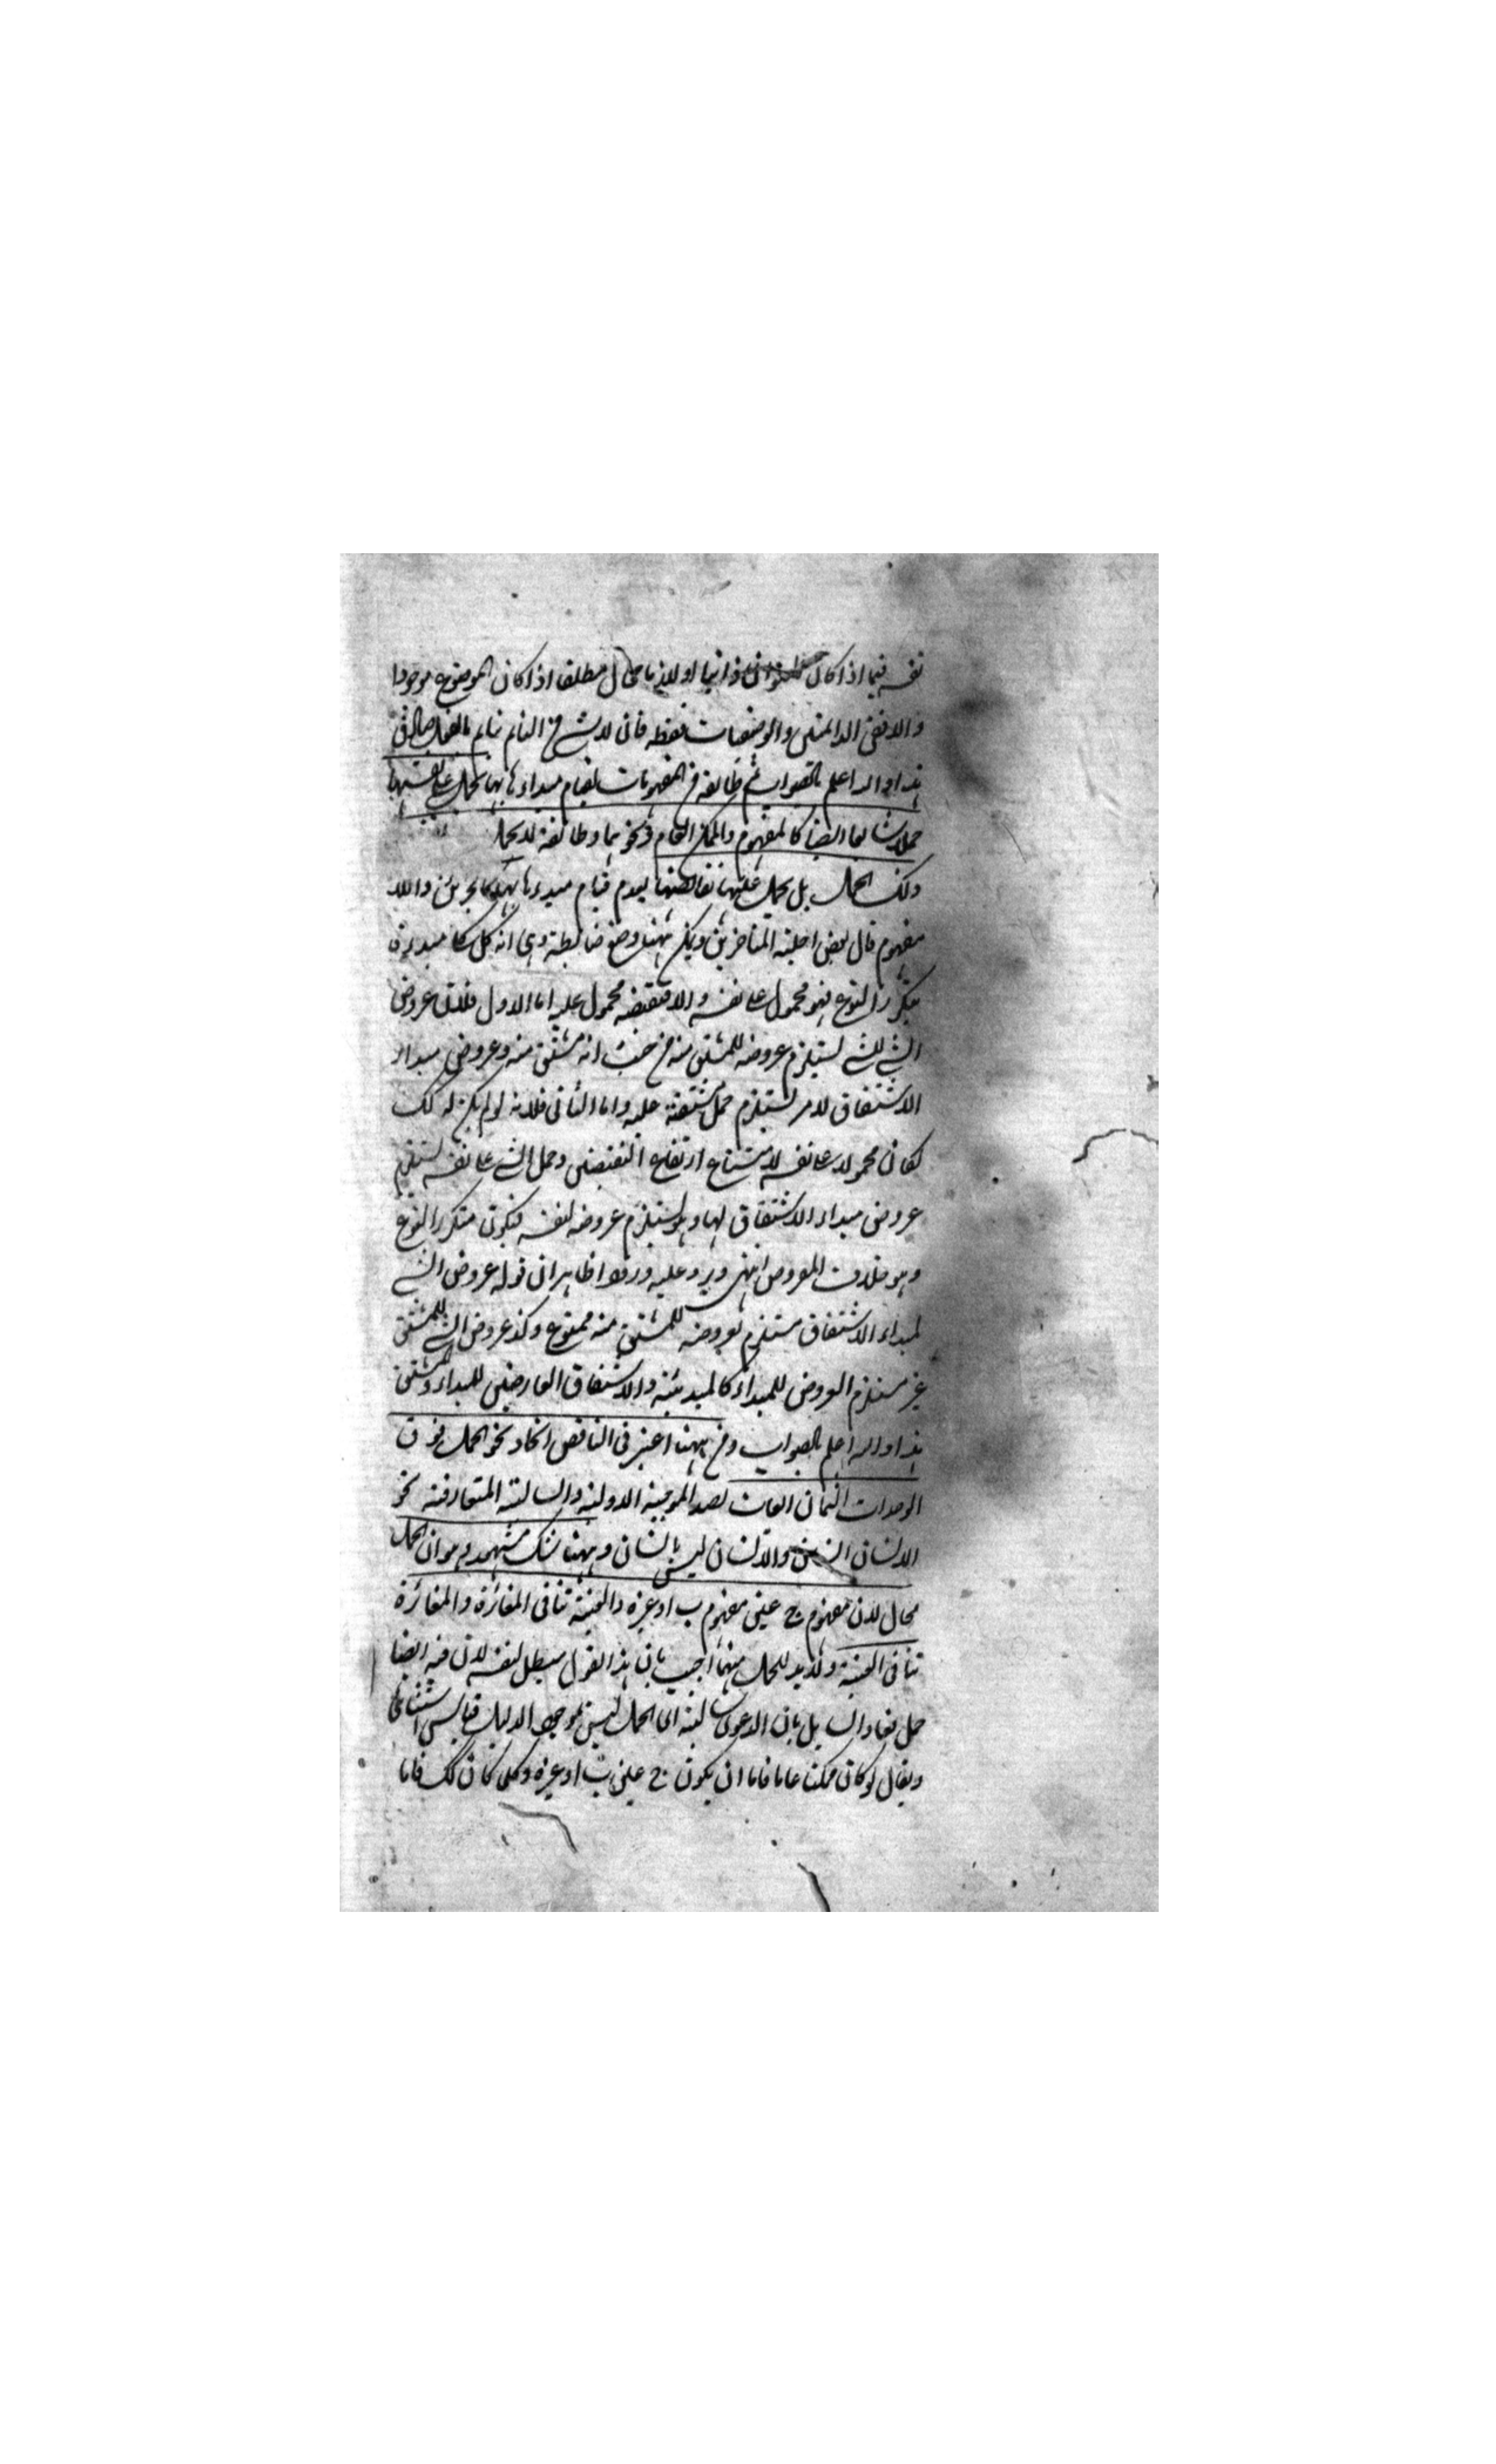 نفسه فيما اذا كان ذاتيا او للذات محال مطلقا اذا كان الموضوع موجودا
والا ففى الدائمتين والوصفيات فقط فان لا شئ من النائم نائم بالفعل صادق
هذا والله اعلم بالصواب ثم طائفة من المفهومات لقيام مبداءها بها تحمل على نفسها
حملا شائعا ايضا كالمفهوم والممكن العام ونحوهما وطائفة لا تحمل
ذلك الحمل بل تحمل عليها نقائضها لعدم قيام مبدءها بها كالجزئى واللا
مفهوم قال بعض اجلة المتاخرين ويمكن ههنا وضع ضابطة وهى انه كل كلى مبدءه
يتكرر النوع فهو محمول على نفسه والا فنقيضه محمول عليه اما الاول فلان عروض
الشئ للشئ يستلزم عروضه للمشتق منه من حيث انه مشتق منه وعروض مبداء
الاشتقاق لامر يستلزم حمل مشتقه عليه واما الثانى فلانه لو لم يكن كذلك
لكان محمولا على نفسه لامتناع ارتفاع النقيضين وحمل الشئ على نفسه يستلزم
عروض مبداء الاشتقاق لها وهو يستلزم عروضه لنفسه فيكون متكرر النوع
وهو خلاف المفروض انتهى ويرد عليه ورودا ظاهرا ان قوله عروض الشئ
لمبداء الاشتقاق مستلزم لعروضه للمشتق منه ممنوع وكذا عروض الشئ للمشتق
غير مستلزم العروض للمبداء كالمبدئية والاشتقاق العارضين للمبداء والمشتق
هذا والله اعلم بالصواب ومن ههنا اعتبر فى التناقض اتحاد نحو الحمل فوق
الوحدات الثمان لصدق الموجبة الاولية والسالبة المتعارفة نحو
الانسان والانسان ليس بانسان وههنا شك مشهور وهو ان الحمل
محال لان مفهوم ج عين مفهوم ب او غيره والعينية تنافى المغائرة والمغائرة
تنافى العينية ولا بد للحمل منهما اجيب بان هذا القول مبطل لنفسه لان فيه ايضا
حمل فعاد السائل بان الدعوى سالبة اى الحمل ليس بموجود الدليل قياس استثنائى
ويقال لو كان ممكنا عاما فاما ان يكون ج عين ب او غيره وكلما كان كذلك فاما